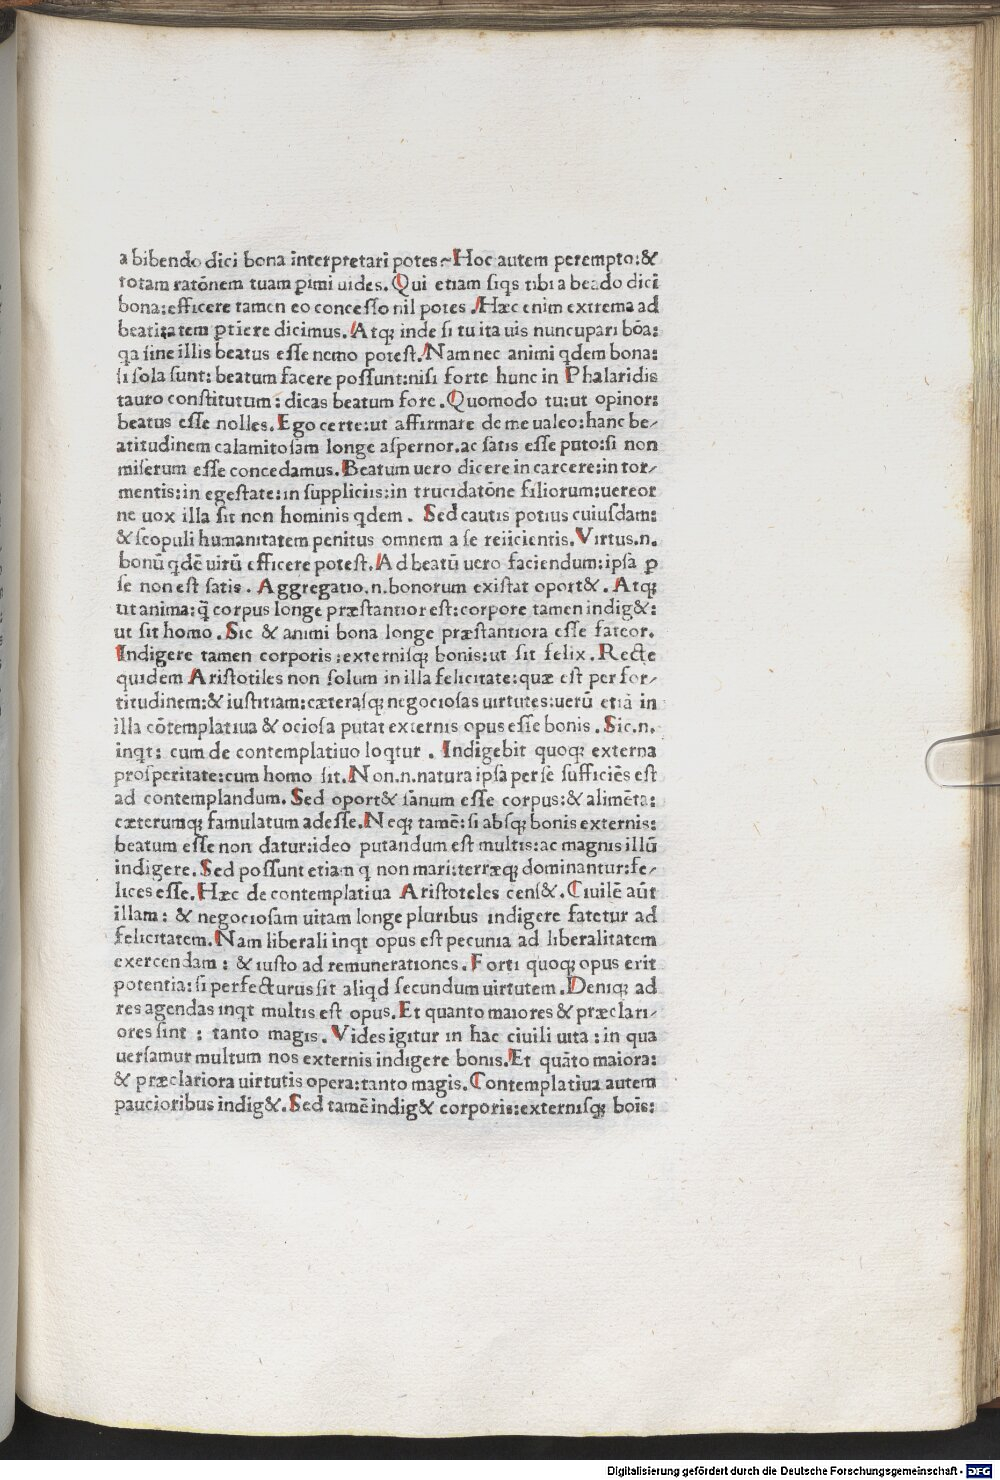 a bibendo dici bona īnterpretari potes ~ Hoc autem perempto:&
totam ratōnem tuam ꝑimi uides. Qui etiam siqs tibi a beādo dici
bona:efficere tamen eo concesso nil potes . Hæc enim extrema ad
beatitatem ꝑtiere dicimus. Atqꝫ inde si tu ita uis nuncupari bōa:
qa sine illis beatus esse nemo potest. Nam nec animi qdem bona:
si sola sunt: beatum facere possunt:nisi forte hunc in Phalaridis
tauro constitutum : dicas beatum fore. Quomodo tu:ut opinor:
beatus esse nolles. Ego certe:ut affirmare de me ualeo:hanc be/
atitudinem calamitosam longe aspernor.ac satis esse puto:si non
miserum esse concedamus. Beatum uero dicere in carcere:in tor/
mentis:in egestate:in suppliciis:in trucidatōne filiorum:uereor
ne uox illa sit non hominis qdem . Sed cautis potius cuiusdam:
& scopuli humanitatem penitus omnem a se reiicientis. Virtus.n.
bonū qdē uirū efficere potest. Ad beatū uero faciendum:ipsa ꝑ
se non est satis . Aggregatio.n.bonorum existat oport&. Atqꝫ
ut anima:q̄ corpus longe præstantior est:corpore tamen indig&:
ut sit homo . Sic & animi bona longe præstantiora esse fateor.
Indigere tamen corporis:externisqꝫ bonis:ut sit felix . Recte
quidem Aristotiles non solum in illa felicitate:quæ est per for/
titudinem:& iustitiam:cæterasqꝫ negociosas uirtutes:uerū etiā in
illa cōtemplatiua & ociosa putat externis opus esse bonis . Sic.n.
inqt: cum de contemplatiuo loqtur . Indigebit quoqꝫ externa
prosperitate:cum homo sit. Non.n.natura ipsa per se sufficiēs est
ad contemplandum. Sed oport& sanum esse corpus:& alimēta:
cæterumqꝫ famulatum adesse. Neqꝫ tamē: si absqꝫ bonis externis:
beatum esse non datur:ideo putandum est multis:ac magnis illū
indigere. Sed possunt etiam q non mari:terræqꝫ dominantur:fe/
lices esse. Hæc de contemplatiua Aristoteles cens&. Ciuilē aūt
illam : & negociosam uitam longe pluribus indigere fatetur ad
felicitatem. Nam liberali inqt opus est pecunia ad liberalitatem
exercendam : & iusto ad remunerationes . Forti quoqꝫ opus erit
potentia:si perfecturus sit aliqd secundum uirtutem . Deniqꝫ ad
res agendas inqt multis est opus. Et quanto maiores & præclari/
ores sint : tanto magis. Vides igitur in hac ciuili uita : in qua
uersamur multum nos externis indigere bonis. Et quāto maiora:
& præclariora uirtutis opera:tanto magis. Contemplatiua autem
paucioribus indig&. Sed tamē indig& corporis:externisqꝫ bois:
Digitalisierung gefördert durch die Deutsche Forschungsgemeinschaft - DFG